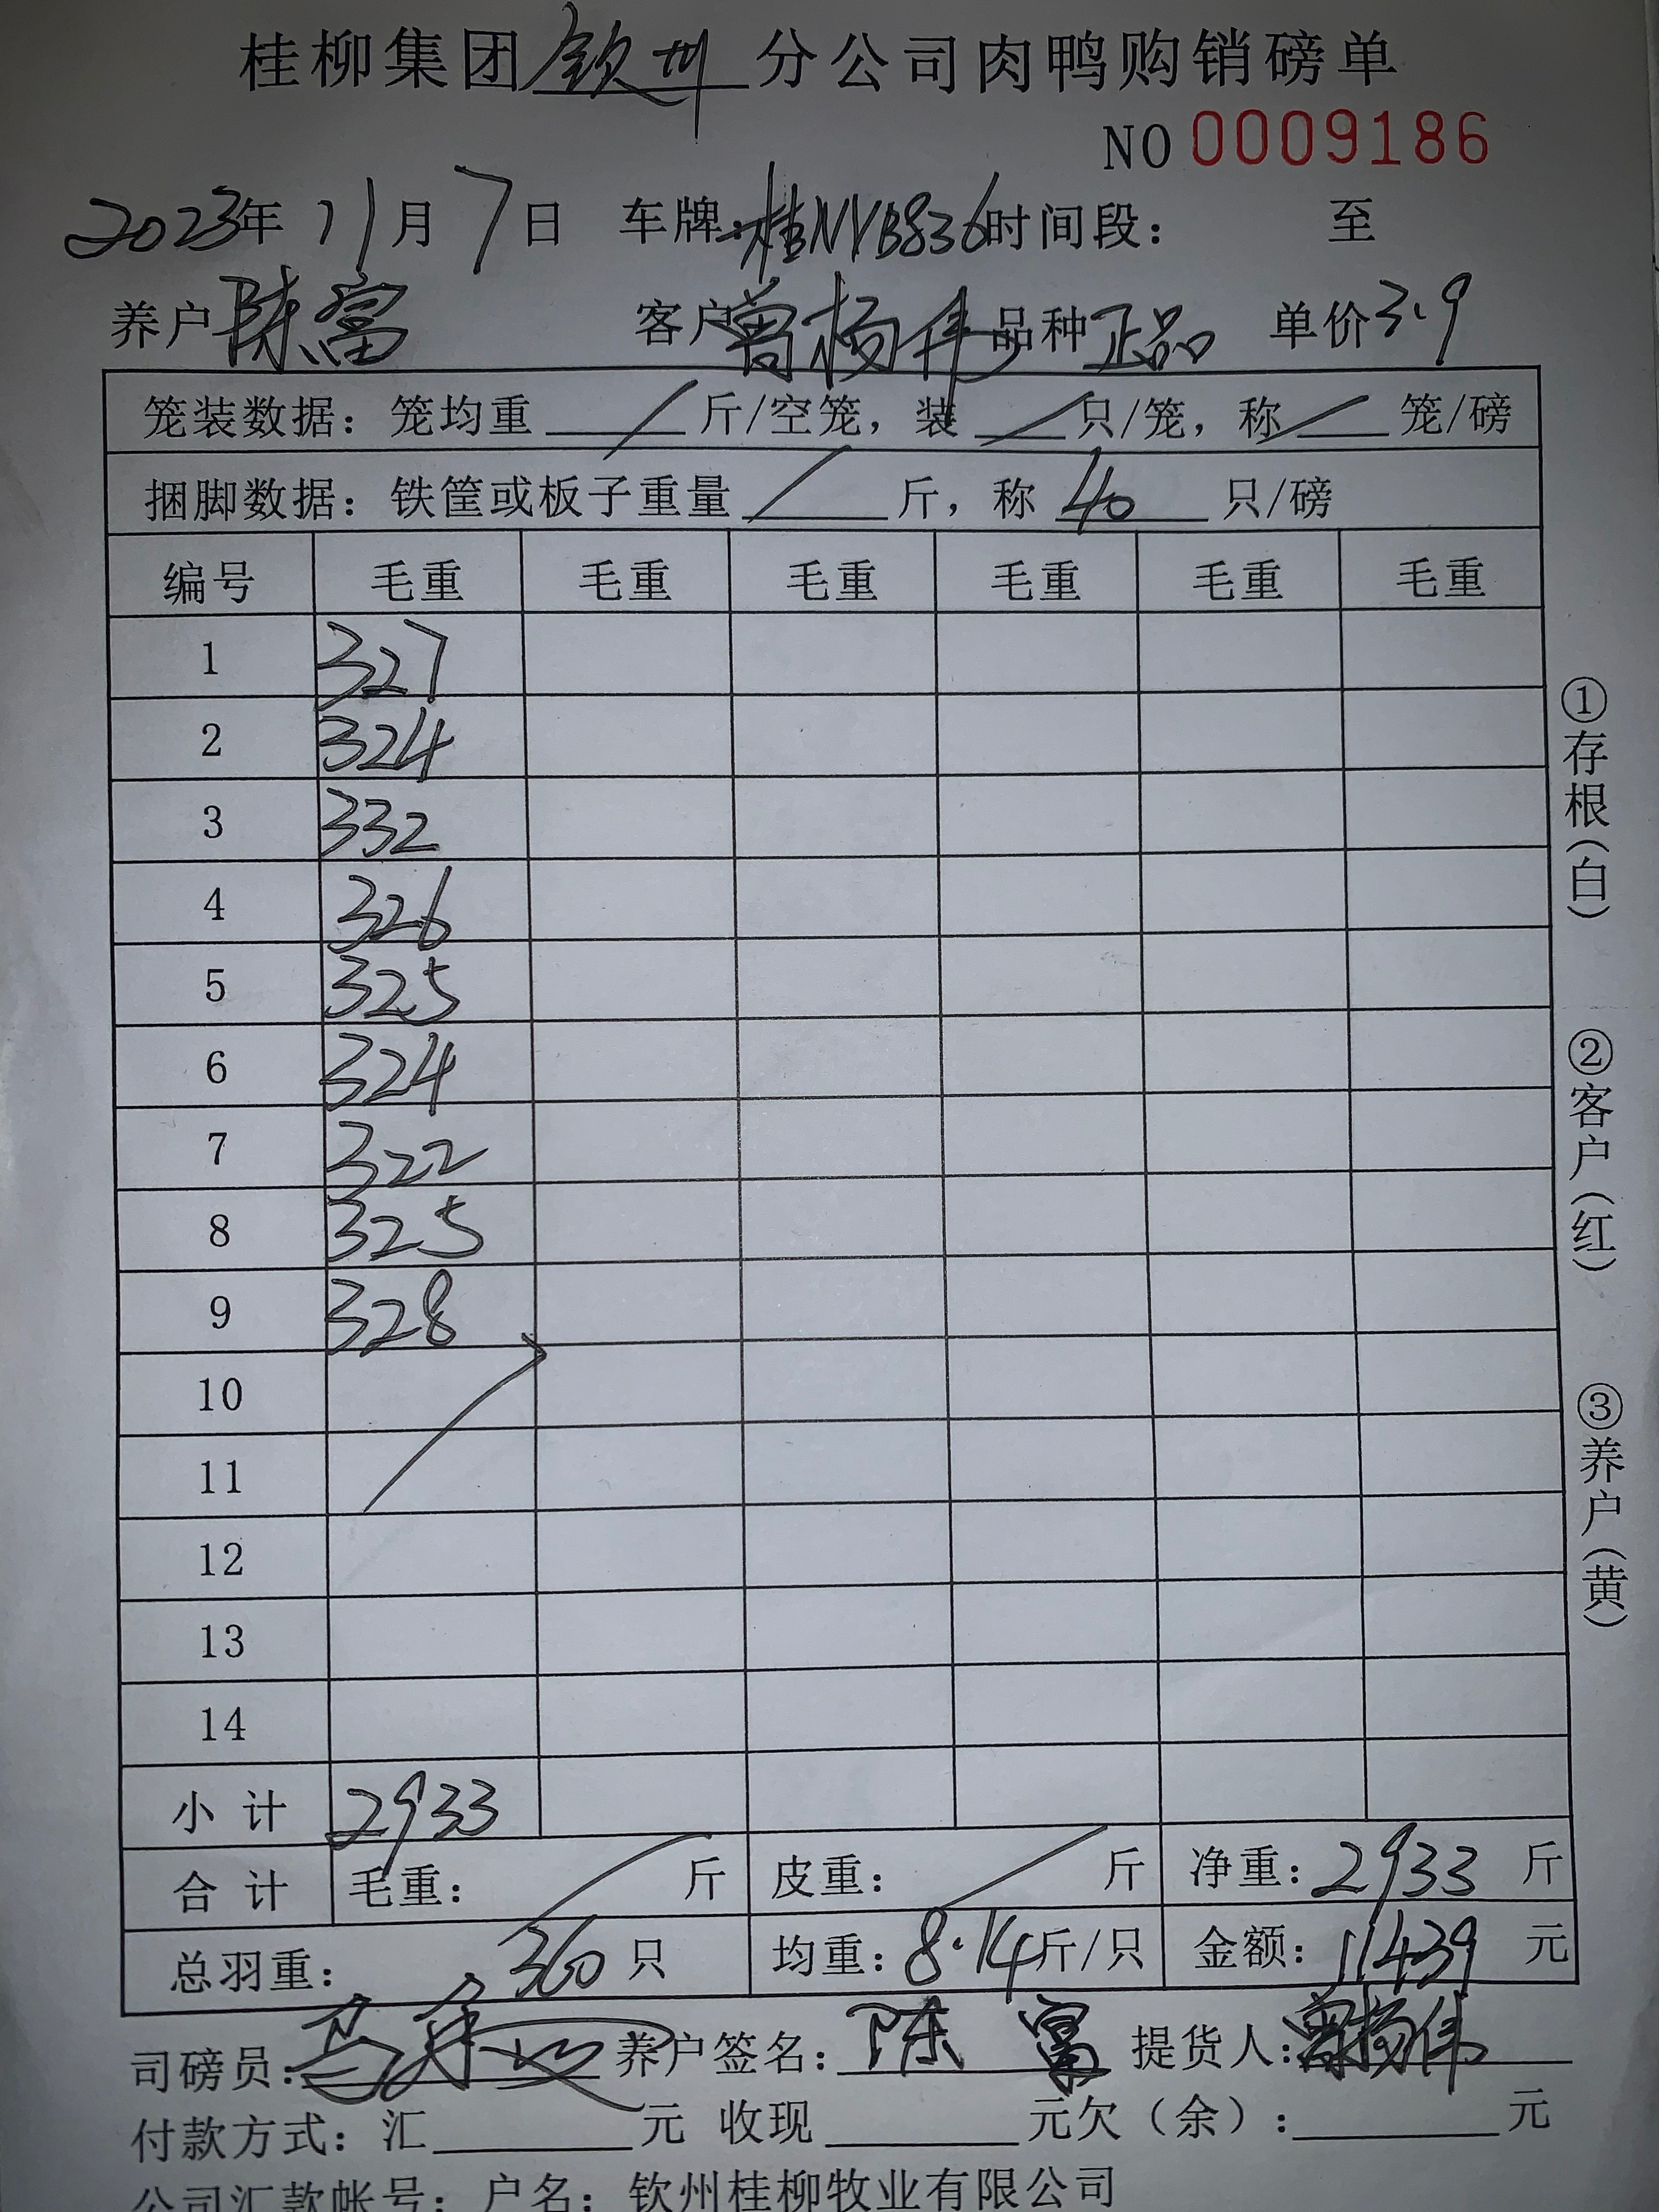 桂柳集团钦州分公司肉鸭购销磅单
NO 0009186
2023年 11月 7日 车牌:桂NYB836时间段: 至
养户陈富 客户曾杨伟品种正品 单价3.9
笼装数据:笼均重 / 斤/空笼,装 / 只/笼,称 / 笼/磅
捆脚数据:铁筐或板子重量 / 斤,称 40 只/磅
编号 毛重 毛重 毛重 毛重 毛重 毛重
1 327
2 324
3 332
4 326
5 325
6 324
7 322
8 325
9 328
10
11
12
13
14
小 计 2933
合 计 毛重: / 斤 皮重: / 斤 净重:2933 斤
总羽重: 360 只 均重:8.14斤/只 金额:11439 元
司磅员: 养户签名:陈 富 提货人:曾杨伟
付款方式:汇 元 收现 元欠(余): 元
公司汇款帐号:户名:钦州桂柳牧业有限公司
①存根(白)
②客户(红)
③养户(黄)